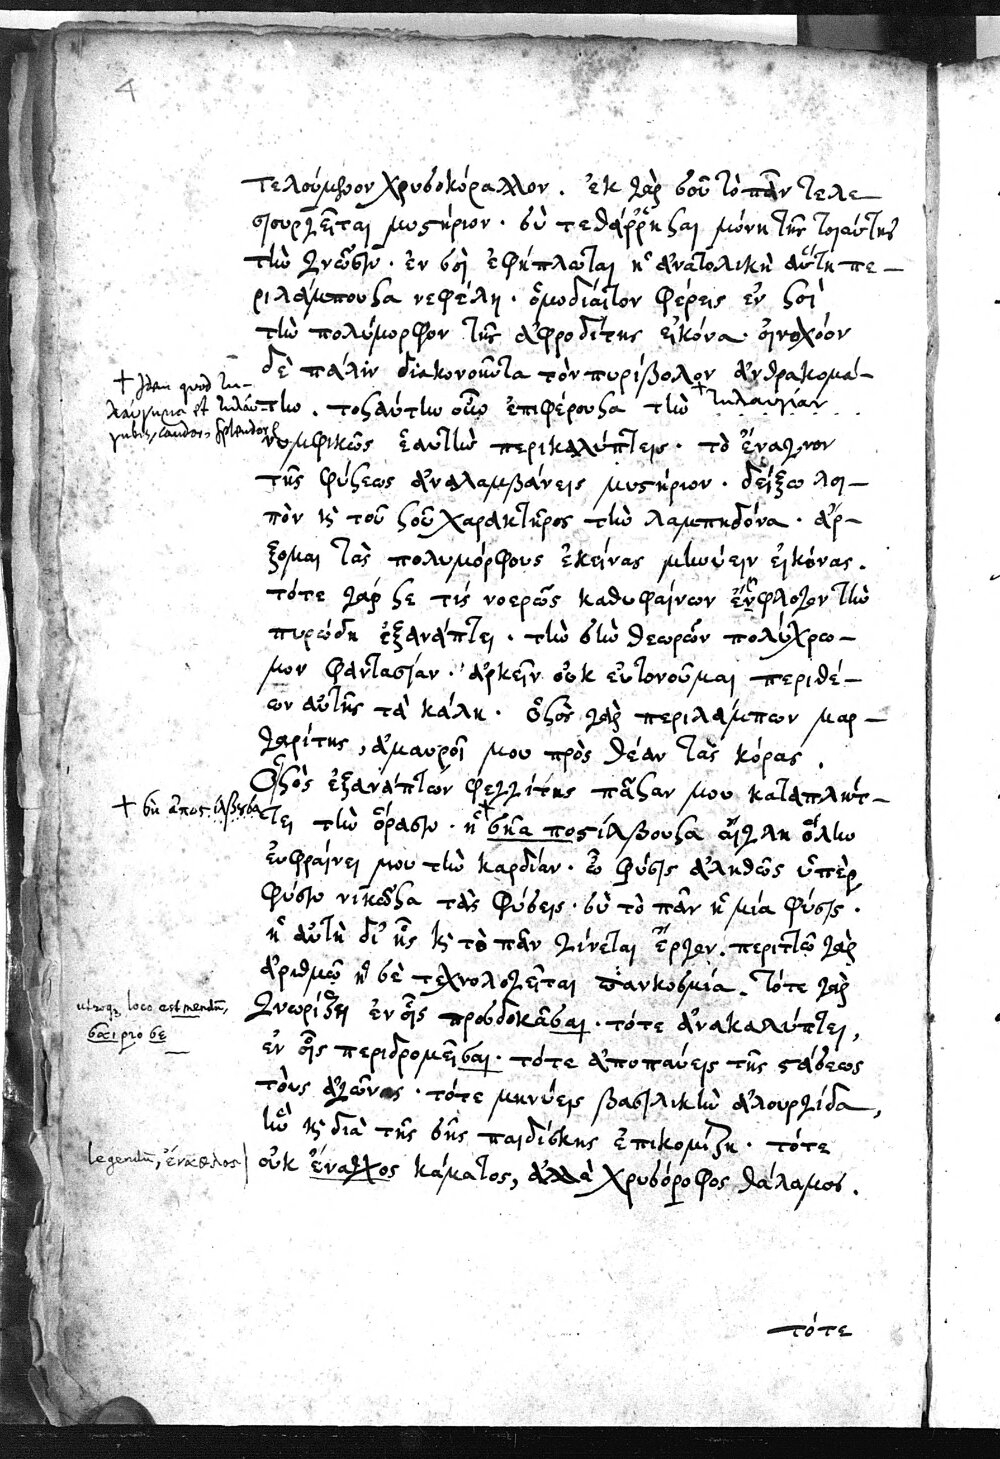 4
τελούμενον χρυσοκόραλλον. ἐκ γὰρ σοῦ τὸ πᾶν τελε-
σιουργεῖται μυστήριον. σὺ τεθάρρηκαι μόνη τῆς τοιαύτης
τὴν γνῶσιν. ἐν σοὶ ἐφήπλωται ἡ ἀνατολικὴ αὕτη πε-
ριλάμπουσα νεφέλη. ὁμοδίαιτον φέρεις ἐν σοὶ
τὴν πολύμορφον τῆς ἀφροδίτης εἰκόνα. οἰνοχόον
δὲ πάλιν διακονοῦντα τὸν πυρίβολον ἀνθρακομά-
την. τοσαύτην οὖν ἐπιφέρουσα τὴν + τηλαυγίαν
νυμφικῶς ἑαυτὴν περικαλύπτεις. τὸ ἔναγνον
τῆς φύσεως ἀναλαμβάνεις μυστήριον. δείξω λοι-
πὸν κ τοῦ σοῦ χαρακτῆρος τὴν λαμπηδόνα. ἄρ-
ξομαι τὰς πολυμόρφους ἐκείνας μηνύειν εἰκόνας.
τότε γάρ σε τις νοερῶς καθυφαίνων ἔμφλογον τὴν
πυρώδη ἐξανάπτει. τὴν σὴν θεωρῶν πολύχρω-
μον φαντασίαν. ἀρκεῖν οὐκ εὐτονοῦμαι περιθέ-
ων αὐτῆς τὰ κάλη. ὅσος γὰρ περιλάμπων μαρ-
γαρίτης, ἀμαυροῖ μου πρὸς θέαν τὰς κόρας.
Ὅσος ἐξανάπτων φεγγίτης πᾶσαν μου καταπλήτ-
τει τὴν ὅρασιν. ἡ + σῆα ποστίλβουσα αἴγλη ὅλην
εὐφραίνει μου τὴν καρδίαν. ὦ φύσις ἀληθῶς ὑπὲρ
φύσιν νικῶσα τὰς φύσεις. σὺ τὸ πᾶν ἡ μία φύσις.
ἡ αὐτὴ δι' ἧς κ τὸ πᾶν γίνεται ἔργον. περιττῷ γὰρ
ἀριθμῷ ἡ σὲ τεχνολογεῖται πανκοσμία. τότε γὰρ
γνωρίσει ἐν οἷς προσδοκᾶσαι. τότε ἀνακαλύπτει,
ἐν οἷς περιδρομεῖσαι. τότε ἀποπαύεις τῆς στάσεως
τοὺς ἀγῶνας. τότε μηνύεις βασιλικὴν ἁλουργίδα,
ἣν κ διὰ τῆς σῆς παιδίσκης ἐπικομίζῃ. τότε
οὐκ ἔναγχος κάματος, ἀλλὰ χρυσόροφος θάλαμος.
τότε
+ Idem quod τη-
λαύγημα et τηλαύ-
γησις, candor, splendor
+ σὴ ἀποστίλβουσα
utroque loco est mendum,
σαι pro σε
legendum, ἔναεθλος